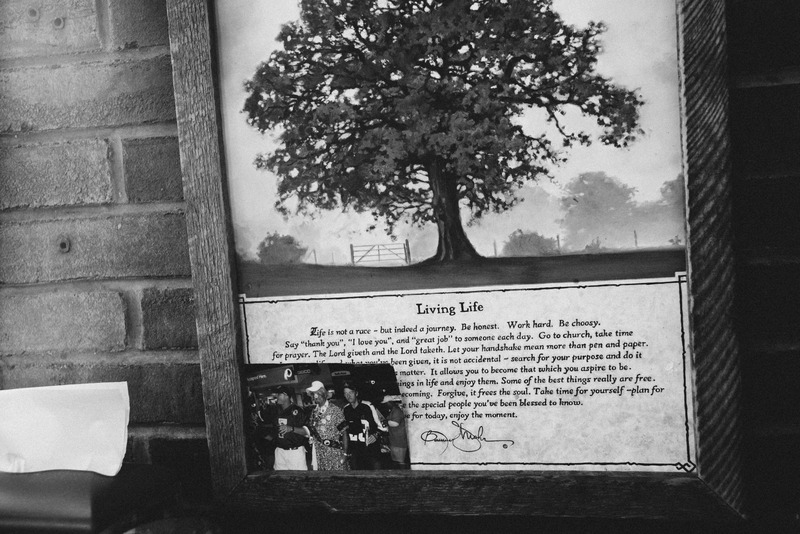 Living Life
Life is not a race - but indeed a journey. Be honest. Work hard. Be choosy.
Say "thank you", "I love you", and "great job" to someone each day. Go to church, take time
for prayer. The Lord giveth and the Lord taketh. Let your handshake mean more than pen and paper.
what you've been given, it is not accidental - search for your purpose and do it
matter. It allows you to become that which you aspire to be.
ings in life and enjoy them. Some of the best things really are free.
ecoming. Forgive, it frees the soul. Take time for yourself -plan for
the special people you've been blessed to know.
e for today, enjoy the moment.